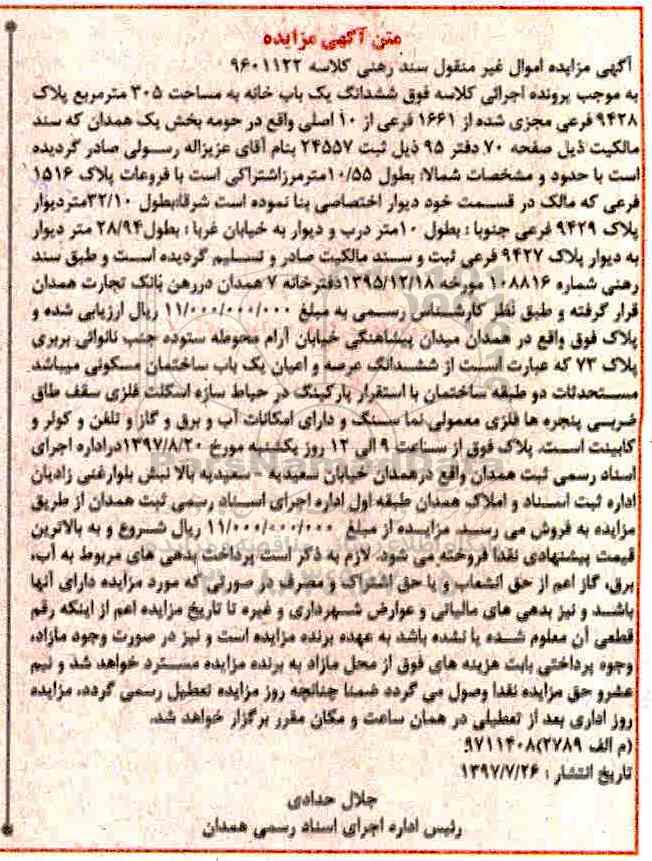 متن آگهی مزایده
آگهی مزایده اموال غیر منقول سند رهنی کلاسه ۹۶۰۱۱۲۲
به موجب پرونده اجرائی کلاسه فوق ششدانگ یک باب خانه به مساحت ۳۰۵ مترمربع پلاک
۹۴۲۸ فرعی مجزی شده از ۱۶۶۱ فرعی از ۱۰ اصلی واقع در حومه بخش یک همدان که سند
مالکیت ذیل صفحه ۷۰ دفتر ۹۵ ذیل ثبت ۲۴۵۵۷ بنام آقای عزیزاله رسولی صادر گردیده
است با حدود و مشخصات شمالا: بطول ۱۰/۵۵مترمرزاشتراکی است با فروعات پلاک ۱۵۱۶
فرعی که مالک در قسمت خود دیوار اختصاصی بنا نموده است شرقا:بطول ۳۲/۱۰متردیوار
پلاک ۹۴۲۹ فرعی جنوبا : بطول ۱۰متر درب و دیوار به خیابان غربا : بطول۲۸/۹۴ متر دیوار
به دیوار پلاک ۹۴۲۷ فرعی ثبت و سند مالکیت صادر و تسلیم گردیده است و طبق سند
رهنی شماره ۱۰۸۸۱۶ مورخه ۱۳۹۵/۱۲/۱۸دفترخانه ۷ همدان دررهن بانک تجارت همدان
قرار گرفته و طبق نظر کارشناس رسمی به مبلغ ۱۱/۰۰۰/۰۰۰/۰۰۰ ریال ارزیابی شده و
پلاک فوق واقع در همدان میدان پیشاهنگی خیابان آرام محوطه ستوده جنب نانوائی بربری
پلاک ۷۳ که عبارت است از ششدانگ عرصه و اعیان یک باب ساختمان مسکونی میباشد
مستحدثات دو طبقه ساختمان با استقرار پارکینگ در حیاط سازه اسکلت فلزی سقف طاق
ضربی پنجره ها فلزی معمولی نما سنگ و دارای امکانات آب و برق و گاز و تلفن و کولر و
کابینت است. پلاک فوق از ساعت ۹ الی ۱۲ روز یکشنبه مورخ ۱۳۹۷/۸/۲۰دراداره اجرای
اسناد رسمی ثبت همدان واقع درهمدان خیابان سعیدیه - سعیدیه بالا نبش بلوارغنی زادیان
اداره ثبت اسناد و املاک همدان طبقه اول اداره اجرای اسناد رسمی ثبت همدان از طریق
مزایده به فروش می رسد. مزایده از مبلغ ۱۱/۰۰۰/۰۰۰/۰۰۰ ریال شروع و به بالاترین
قیمت پیشنهادی نقدا فروخته می شود. لازم به ذکر است پرداخت بدهی های مربوط به آب،
برق، گاز اعم از حق انشعاب و یا حق اشتراک و مصرف در صورتی که مورد مزایده دارای آنها
باشد و نیز بدهی های مالیاتی و عوارض شهرداری و غیره تا تاریخ مزایده اعم از اینکه رقم
قطعی آن معلوم شده یا نشده باشد به عهده برنده مزایده است و نیز در صورت وجود مازاد،
وجوه پرداختی بابت هزینه های فوق از محل مازاد به برنده مزایده مسترد خواهد شد و نیم
عشرو حق مزایده نقدا وصول می گردد ضمنا چنانچه روز مزایده تعطیل رسمی گردد، مزایده
روز اداری بعد از تعطیلی در همان ساعت و مکان مقرر برگزار خواهد شد.
(م الف ۲۷۸۹)۹۷۱۱۴۰۸
تاریخ انتشار : ۱۳۹۷/۷/۲۶
جلال حدادی
رئیس اداره اجرای اسناد رسمی همدان